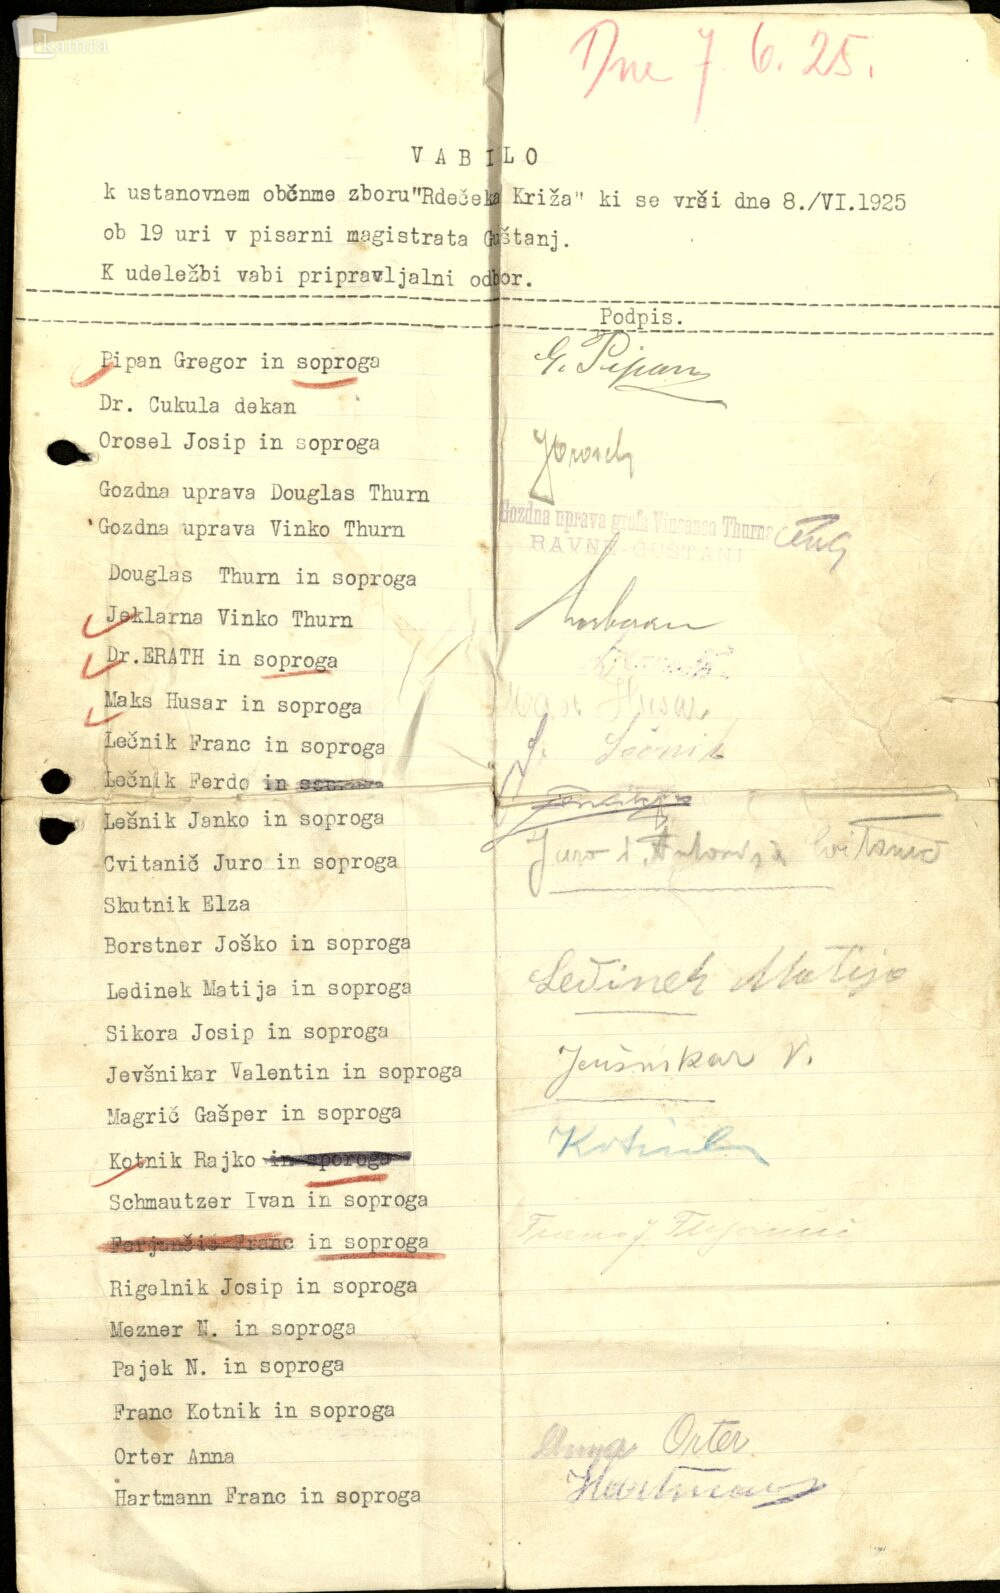 kamra
Dne 7. 6. 25.
VABILO
k ustanovnem občnme zboru "Rdečeka Križa" ki se vrši dne 8./VI.1925
ob 19 uri v pisarni magistrata Guštanj.
K udeležbi vabi pripravljalni odbor.
Podpis.
Pipan Gregor in soproga G. Pipan
Dr. Cukula dekan
Orosel Josip in soproga
Gozdna uprava Douglas Thurn
Gozdna uprava Vinko Thurn Gozdna uprava grofa Vincenca Thurna
RAVNE-GUŠTANJ
Douglas Thurn in soproga
Jeklarna Vinko Thurn
Dr.ERATH in soproga
Maks Husar in soproga Husar
Lečnik Franc in soproga Lečnik
Lečnik Ferdo in soproga
Lešnik Janko in soproga
Cvitanič Juro in soproga Juro i Antonija Cvitanič
Skutnik Elza
Borstner Joško in soproga
Ledinek Matija in soproga Ledinek Matija
Sikora Josip in soproga
Jevšnikar Valentin in soproga Jeušnikar V.
Magrič Gašper in soproga
Kotnik Rajko in sporoga Kotnik
Schmautzer Ivan in soproga
Ferjančič Franc in soproga
Rigelnik Josip in soproga
Mezner N. in soproga
Pajek N. in soproga
Franc Kotnik in soproga
Orter Anna Anna Orter
Hartmann Franc in soproga Hartman